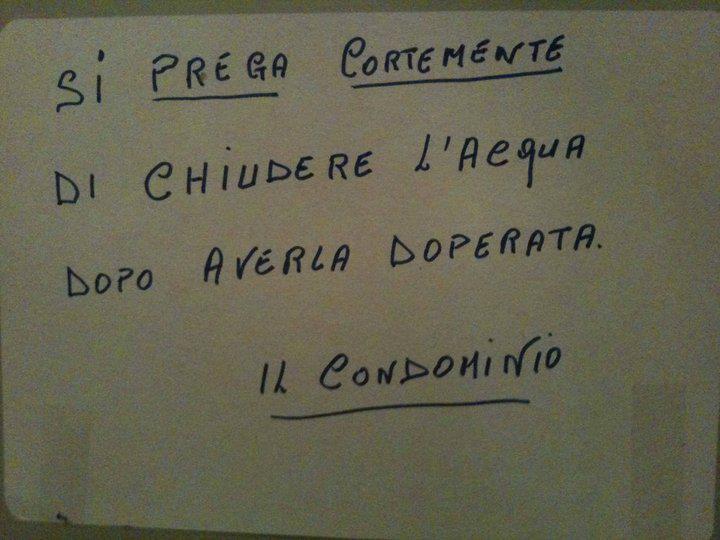 Si PREGA CORTEMENTE
DI CHIUDERE L'ACQUA
DOPO AVERLA DOPERATA.
IL CONDOMINIO